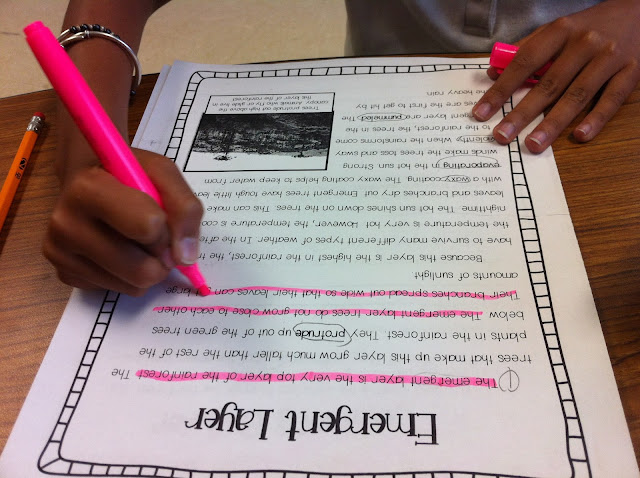 Emergent Layer
1 The emergent layer is the very top layer of the rainforest. The
trees that make up this layer grow much taller than the rest of the
plants in the rainforest. They protrude up out of the green trees
below. The emergent layer trees do not grow close to each other.
Their branches spread out wide so that their leaves can large
amounts of sunlight.
Because this layer is the highest in the rainforest, the
have to survive many different types of weather. In the
the temperature is very hot. However, the temperature is
nighttime. The hot sun shines down on the trees. This can make
leaves and branches dry out. Emergent trees have tough little
with waxy coating. The waxy coating helps to keep water from
evaporating in the hot sun. Strong
winds make the trees toss and sway
violently. When the rainstorms come
to the rainforest, the trees in the
layer are pummeled. The
are the first to get hit by
the heavy rain.
Trees protrude out high above the
canopy. Animals who fly or glide live in
this layer of the rainforest.